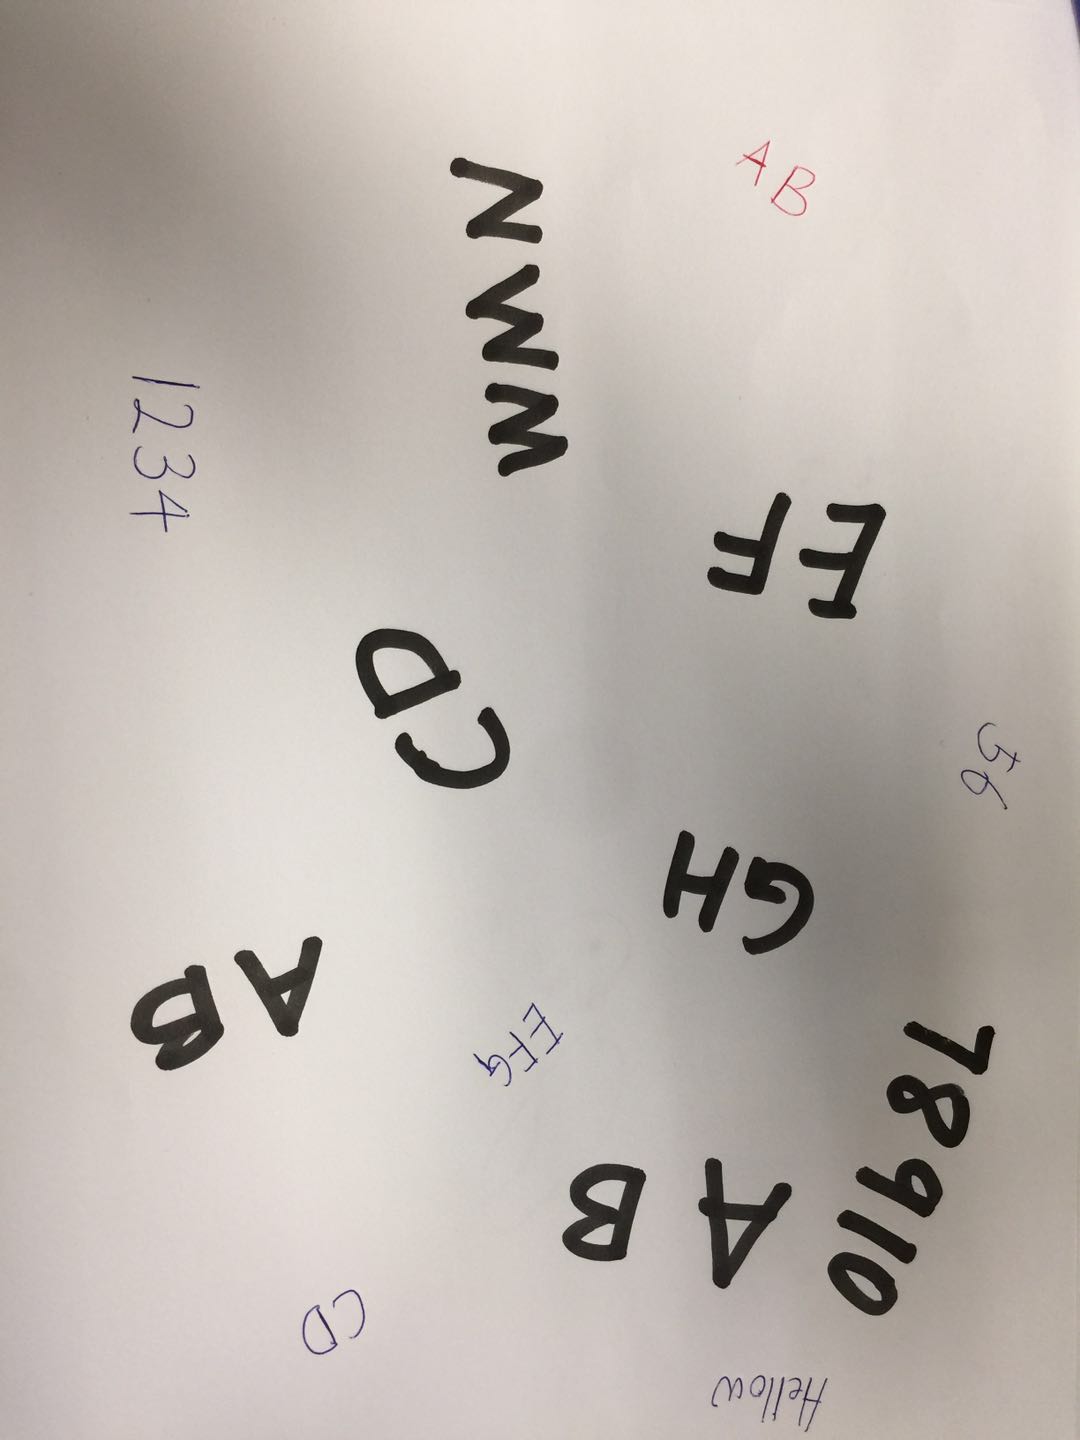 AB
NWM
1234
EF
CD
56
GH
AB
EFG
78910
AB
CD
Hellow